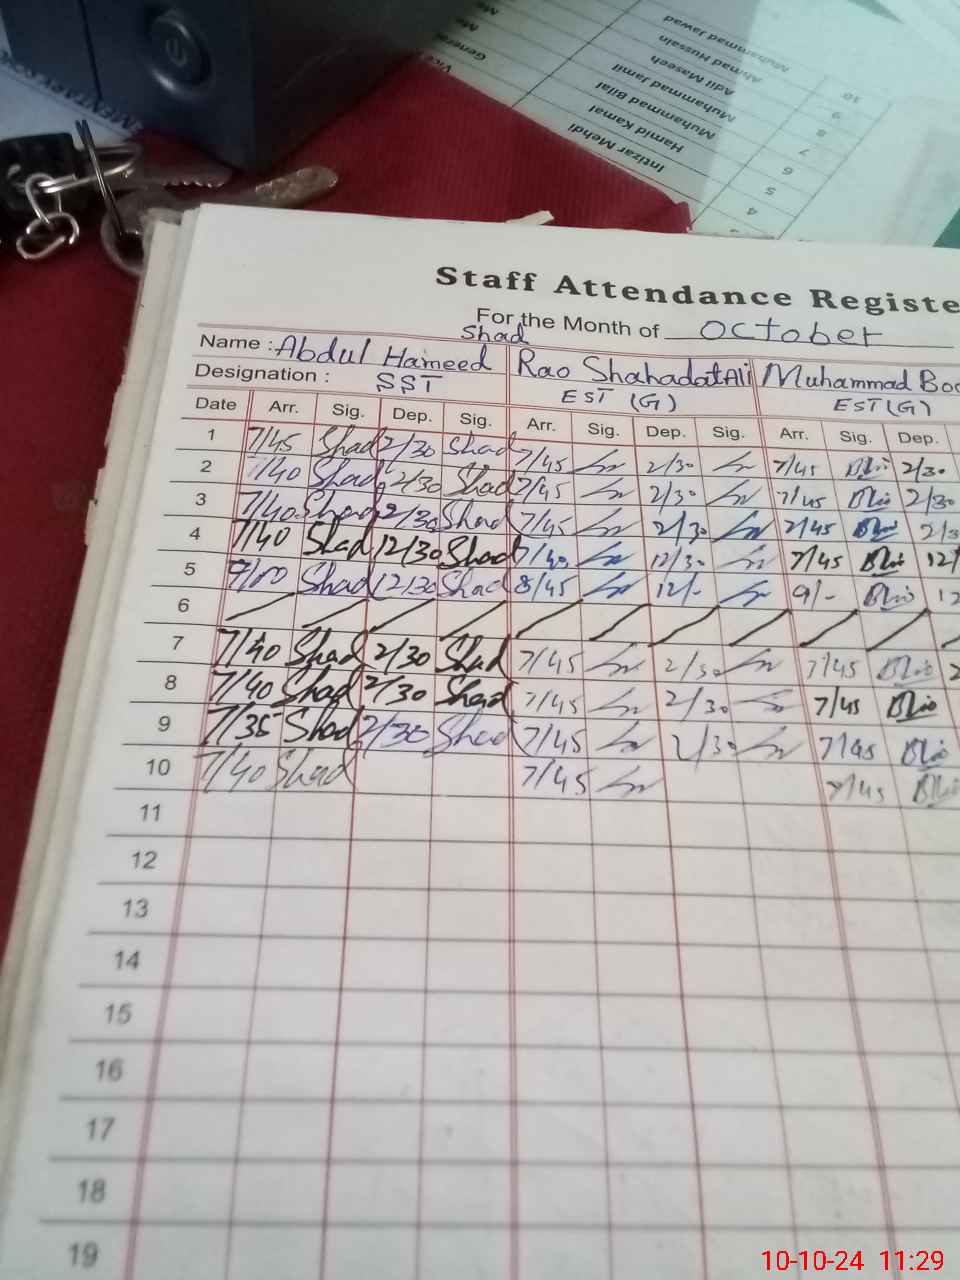 Vice
General
Me
Me
10 Muhammad Jawad
9 Ahmad Hussain
8 Adil Maseeh
7 Muhammad Jamil
6 Muhammad Bilal
5 Hamid Kamal
4 Intizar Mehdi
Staff Attendance Registe
For the Month of October
Name : Abdul Hameed Shad Rao Shahadat Ali Muhammad Boo
Designation : SST EST (G) EST (G)
Date Arr. Sig. Dep. Sig. Arr. Sig. Dep. Sig. Arr. Sig. Dep.
1 7/45 Shad 2/30 Shad 7/45 2/30 7/45 2/30
2 7/40 Shad 2/30 Shad 7/45 2/30 7/45 2/30
3 7/40 Shad 2/30 Shad 7/45 2/30 7/45 2/3
4 7/40 Shad 12/30 Shad 7/40 12/30 7/45 12/
5 Shad 12/30 Shad 8/45 12/- 9/- 12
6
7 7/40 Shad 2/30 Shad 7/45 2/30 7/45 2
8 7/40 Shad 2/30 Shad 7/45 2/30 7/45
9 7/35 Shad 2/30 Shad 7/45 2/30 7/45
10 7/40 Shad 7/45 7/45
11
12
13
14
15
16
17
18
19
10-10-24 11:29